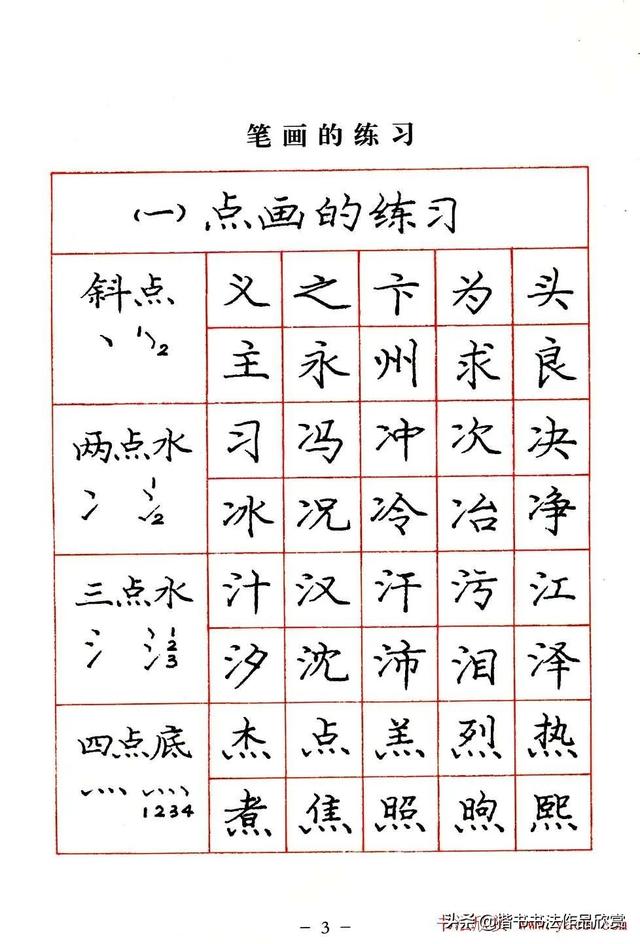 笔画的练习
(一)点画的练习
斜点
义之卞为头
主永州求良
两点水
习冯冲次决
冰况冷冶净
三点水
汁汉汗污江
汐沈沛泪泽
四点底
杰点羔烈热
煮焦照煦熙
1 2
1 2
1 2 3
1234
- 3 -
头条@楷书书法作品欣赏